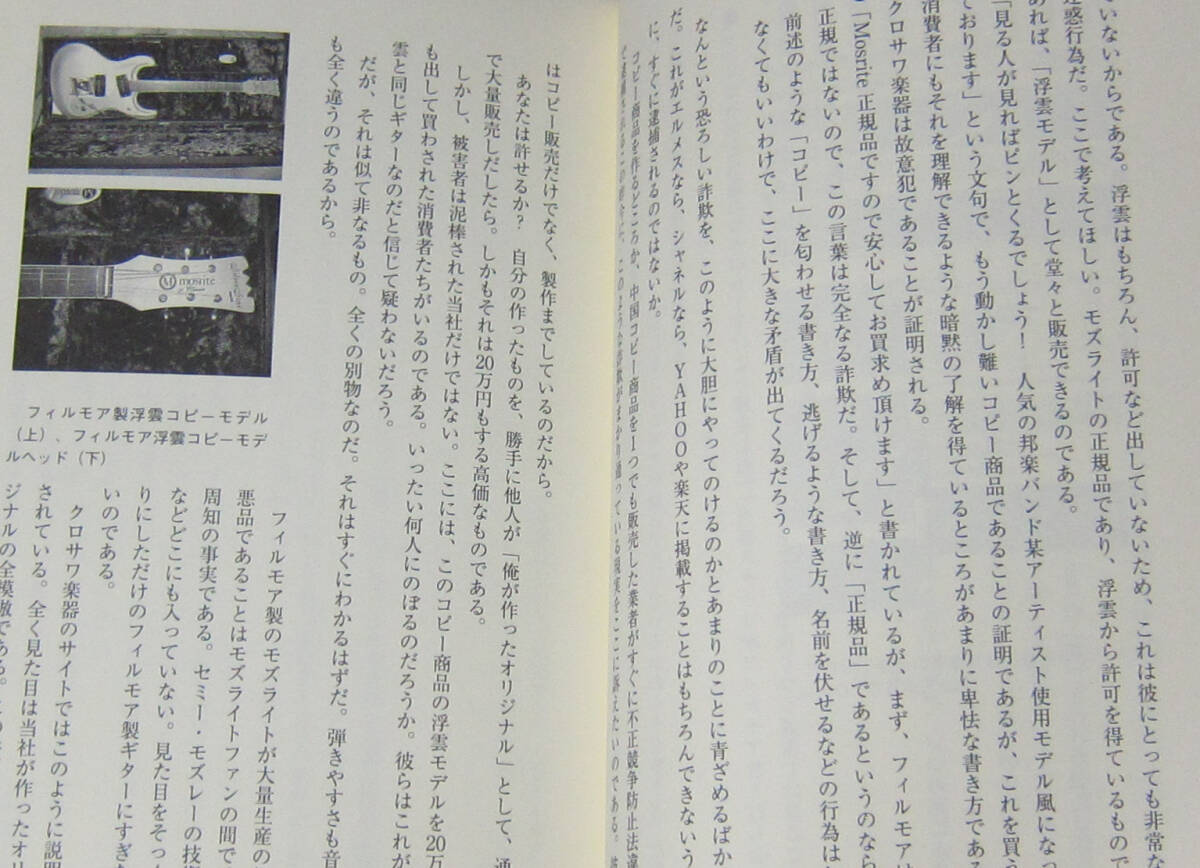 ていないからである。浮雲はもちろん、許可など出していないため、これは彼にとっても非常な
迷惑行為だ。ここで考えてほしい。モズライトの正規品であり、浮雲から許可を得ているもので
あれば、「浮雲モデル」として堂々と販売できるのである。
「見る人が見ればピンとくるでしょう！　人気の邦楽バンド某アーティスト使用モデル風にな
ております」という文句で、もう動かし難いコピー商品であることの証明であるが、これを買
消費者にもそれを理解できるような暗黙の了解を得ているところがあまりに卑怯な書き方であ
クロサワ楽器は故意犯であることが証明される。
「Mosrite 正規品ですので安心してお買求め頂けます」と書かれているが、まず、フィルモアは
正規ではないので、この言葉は完全なる詐欺だ。そして、逆に「正規品」であるというのなら
前述のような「コピー」を匂わせる書き方、逃げるような書き方、名前を伏せるなどの行為は
なくてもいいわけで、ここに大きな矛盾が出てくるだろう。
なんという恐ろしい詐欺を、このように大胆にやってのけるのかとあまりのことに青ざめるばか
だ。これがエルメスなら、シャネルなら、YAHOOや楽天に掲載することはもちろんできないう
に、すぐに逮捕されるのではないか。
コピー商品を作るどころか、中国コピー商品を1つでも販売した業者がすぐに不正競争防止法違
はコピー販売だけでなく、製作までしているのだから。
あなたは許せるか？　自分の作ったものを、勝手に他人が「俺が作ったオリジナル」として、通
で大量販売しだしたら。しかもそれは20万円もする高価なものである。
しかし、被害者は泥棒された当社だけではない。ここには、このコピー商品の浮雲モデルを20万
も出して買わされた消費者たちがいるのである。いったい何人にのぼるのだろうか。彼らはこれが
雲と同じギターなのだと信じて疑わないだろう。
だが、それは似て非なるもの。全くの別物なのだ。それはすぐにわかるはずだ。弾きやすさも音
も全く違うのであるから。
mosrite
フィルモア製浮雲コピーモデル
（上）、フィルモア浮雲コピーモデ
ルヘッド（下）
フィルモア製のモズライトが大量生産の
悪品であることはモズライトファンの間で
周知の事実である。セミー・モズレーの技術
などどこにも入っていない。見た目をそっ
りにしただけのフィルモア製ギターにすぎ
いのである。
クロサワ楽器のサイトではこのように説明
されている。全く見た目は当社が作ったオリ
ジナルの全模倣である。